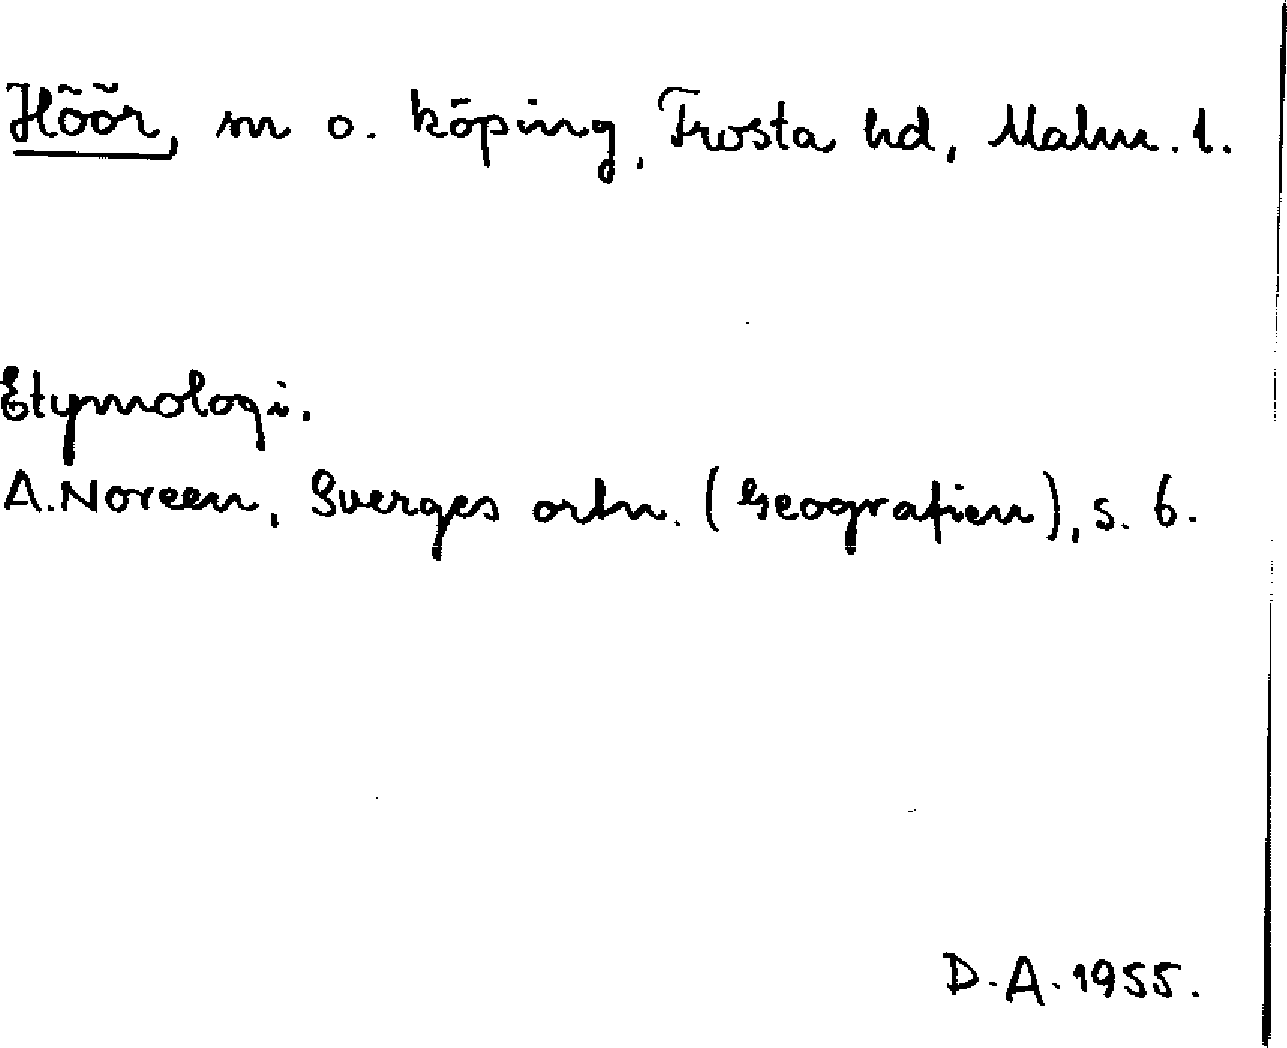 Höör, sn o. köping, Frosta hd, Malm. l.
Etymologi.
A. Noreen, Sverges ortn. (Geografien), s. 6.
D.A. 1955.